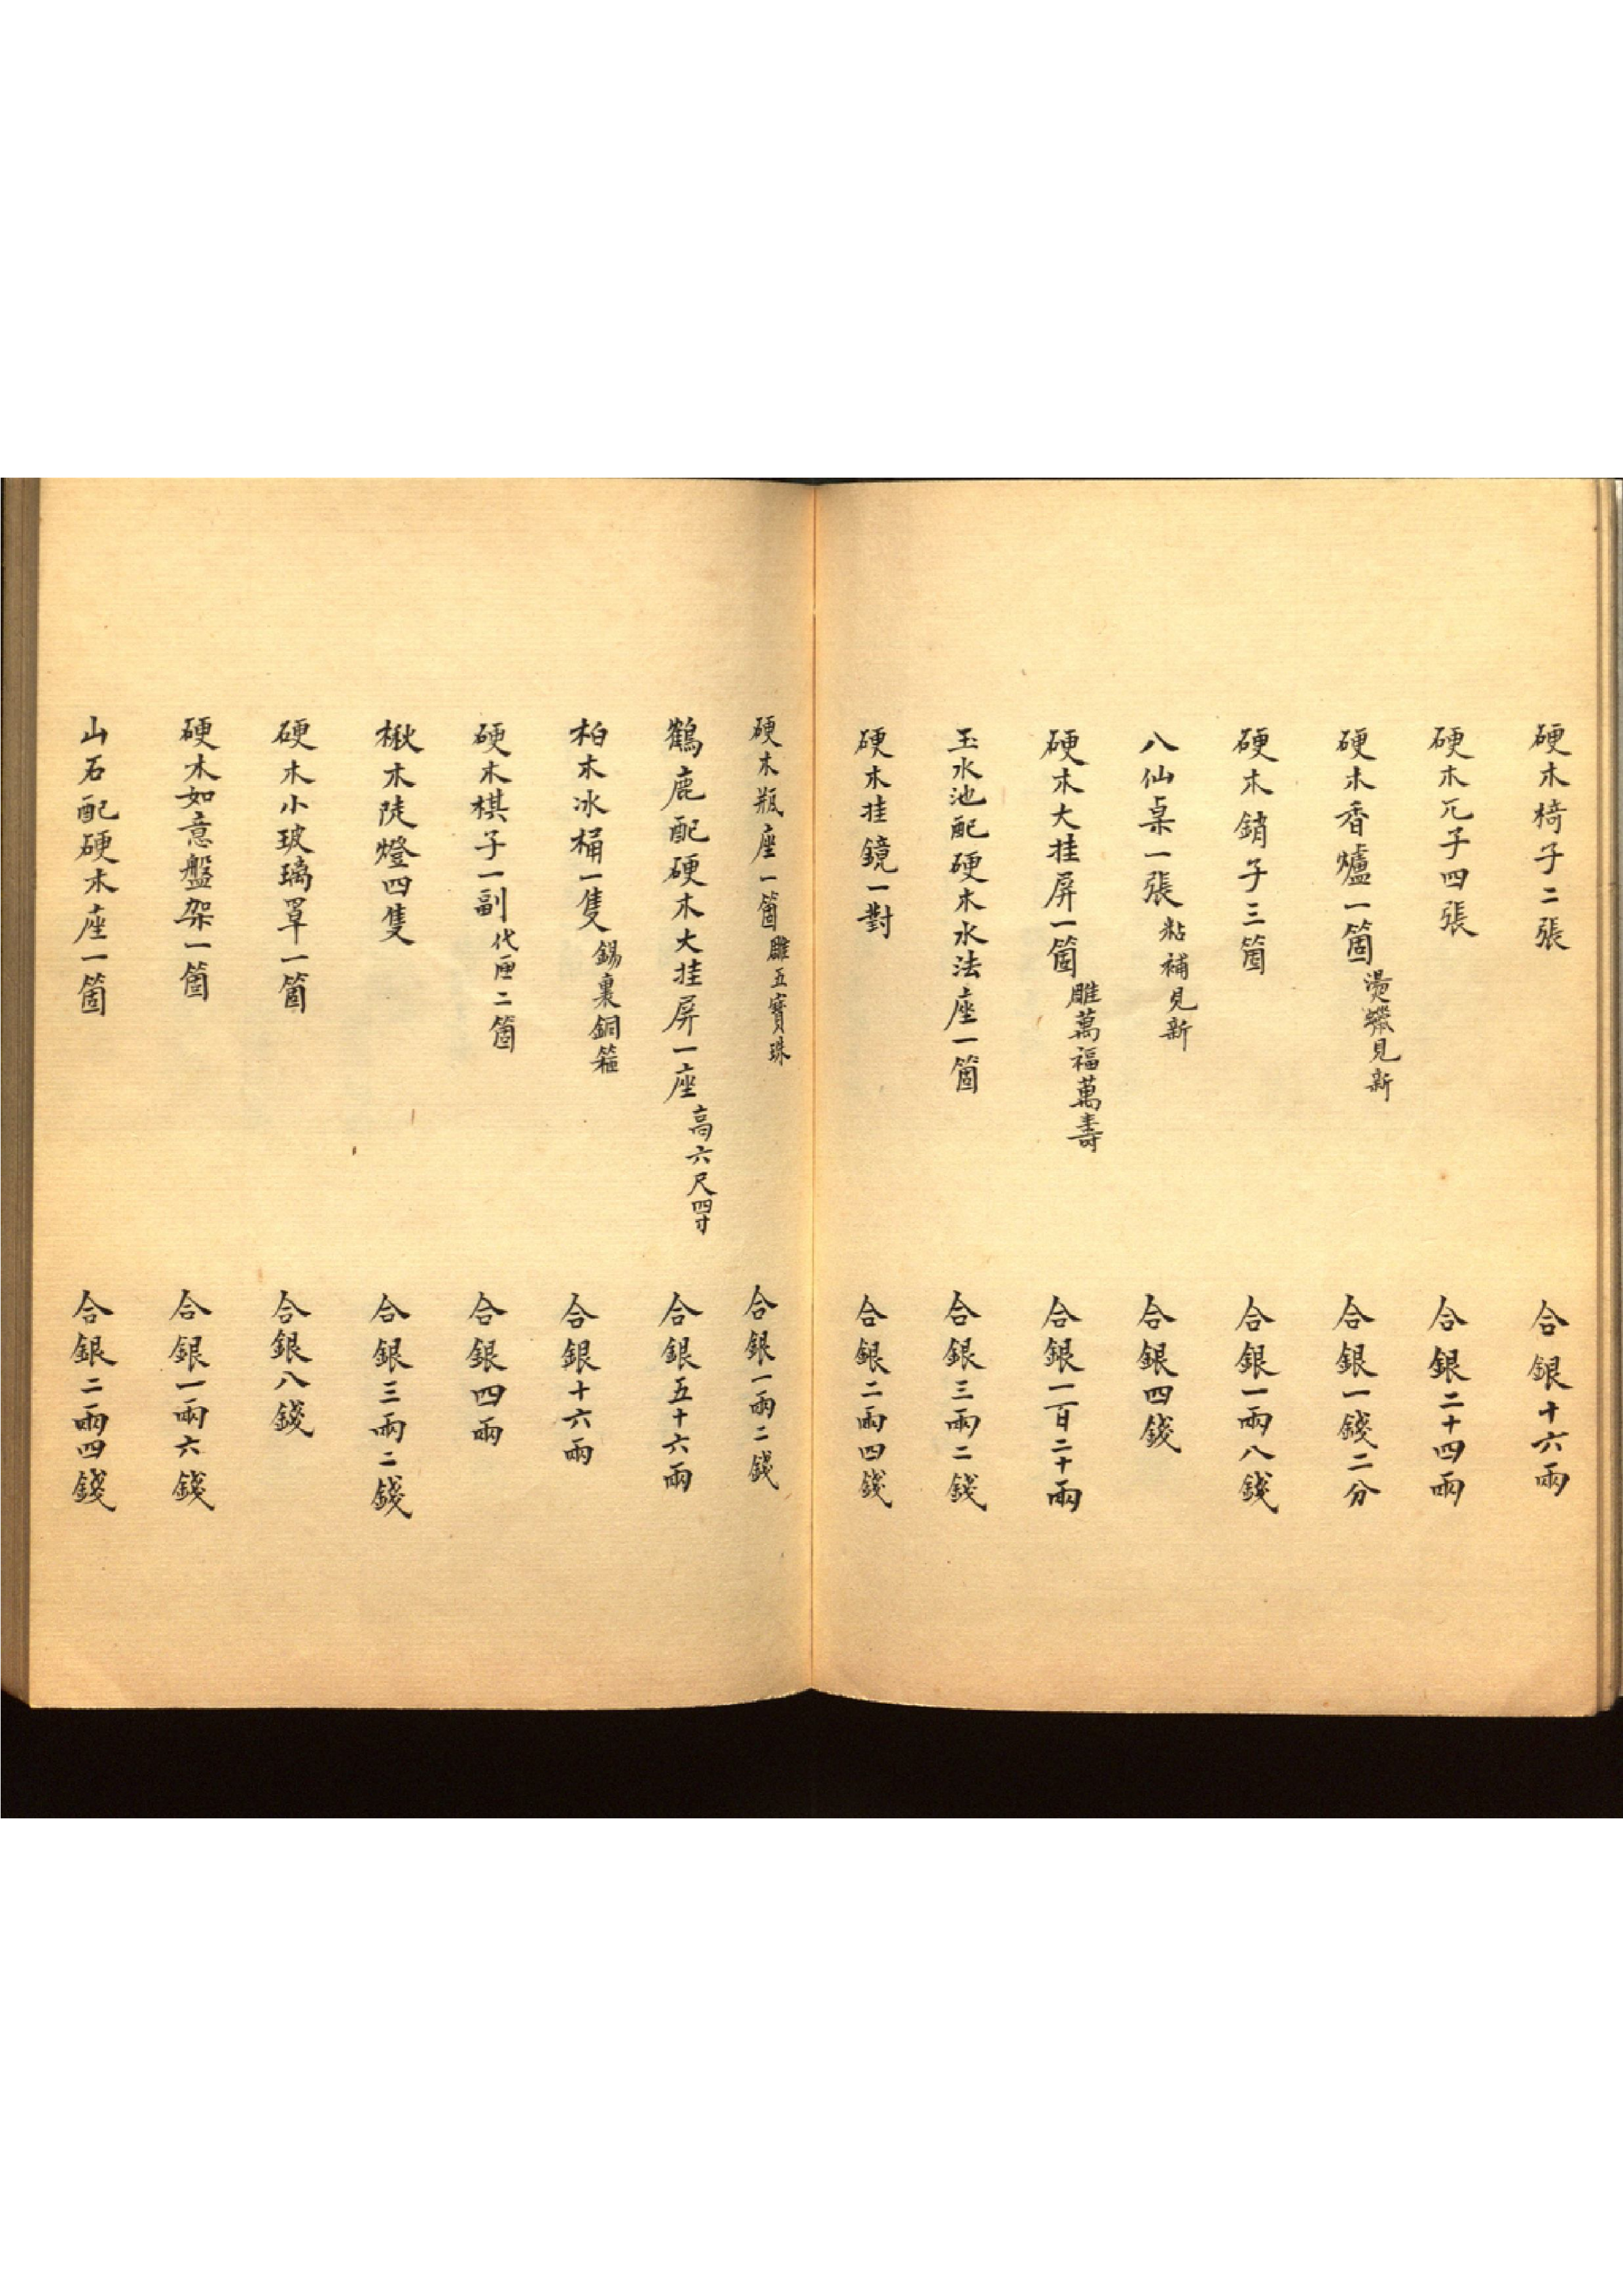 硬木椅子二張 合銀十六兩
硬木兀子四張 合銀二十四兩
硬木香爐一箇燙蠟見新 合銀一錢二分
硬木銷子三箇 合銀一兩八錢
八仙桌一張粘補見新 合銀四錢
硬木大挂屏一箇雕萬福萬壽 合銀一百二十兩
玉水池配硬木水法座一箇 合銀三兩二錢
硬木挂鏡一對 合銀二兩四錢
硬木瓶座一箇雕五寶珠 合銀一兩二錢
鶴鹿配硬木大挂屏一座高六尺四寸 合銀五十六兩
柏木冰桶一隻錫裏銅箍 合銀十六兩
硬木棋子一副代匣二箇 合銀四兩
楸木陡燈四隻 合銀三兩二錢
硬木小玻璃罩一箇 合銀八錢
硬木如意盤架一箇 合銀一兩六錢
山石配硬木座一箇 合銀二兩四錢